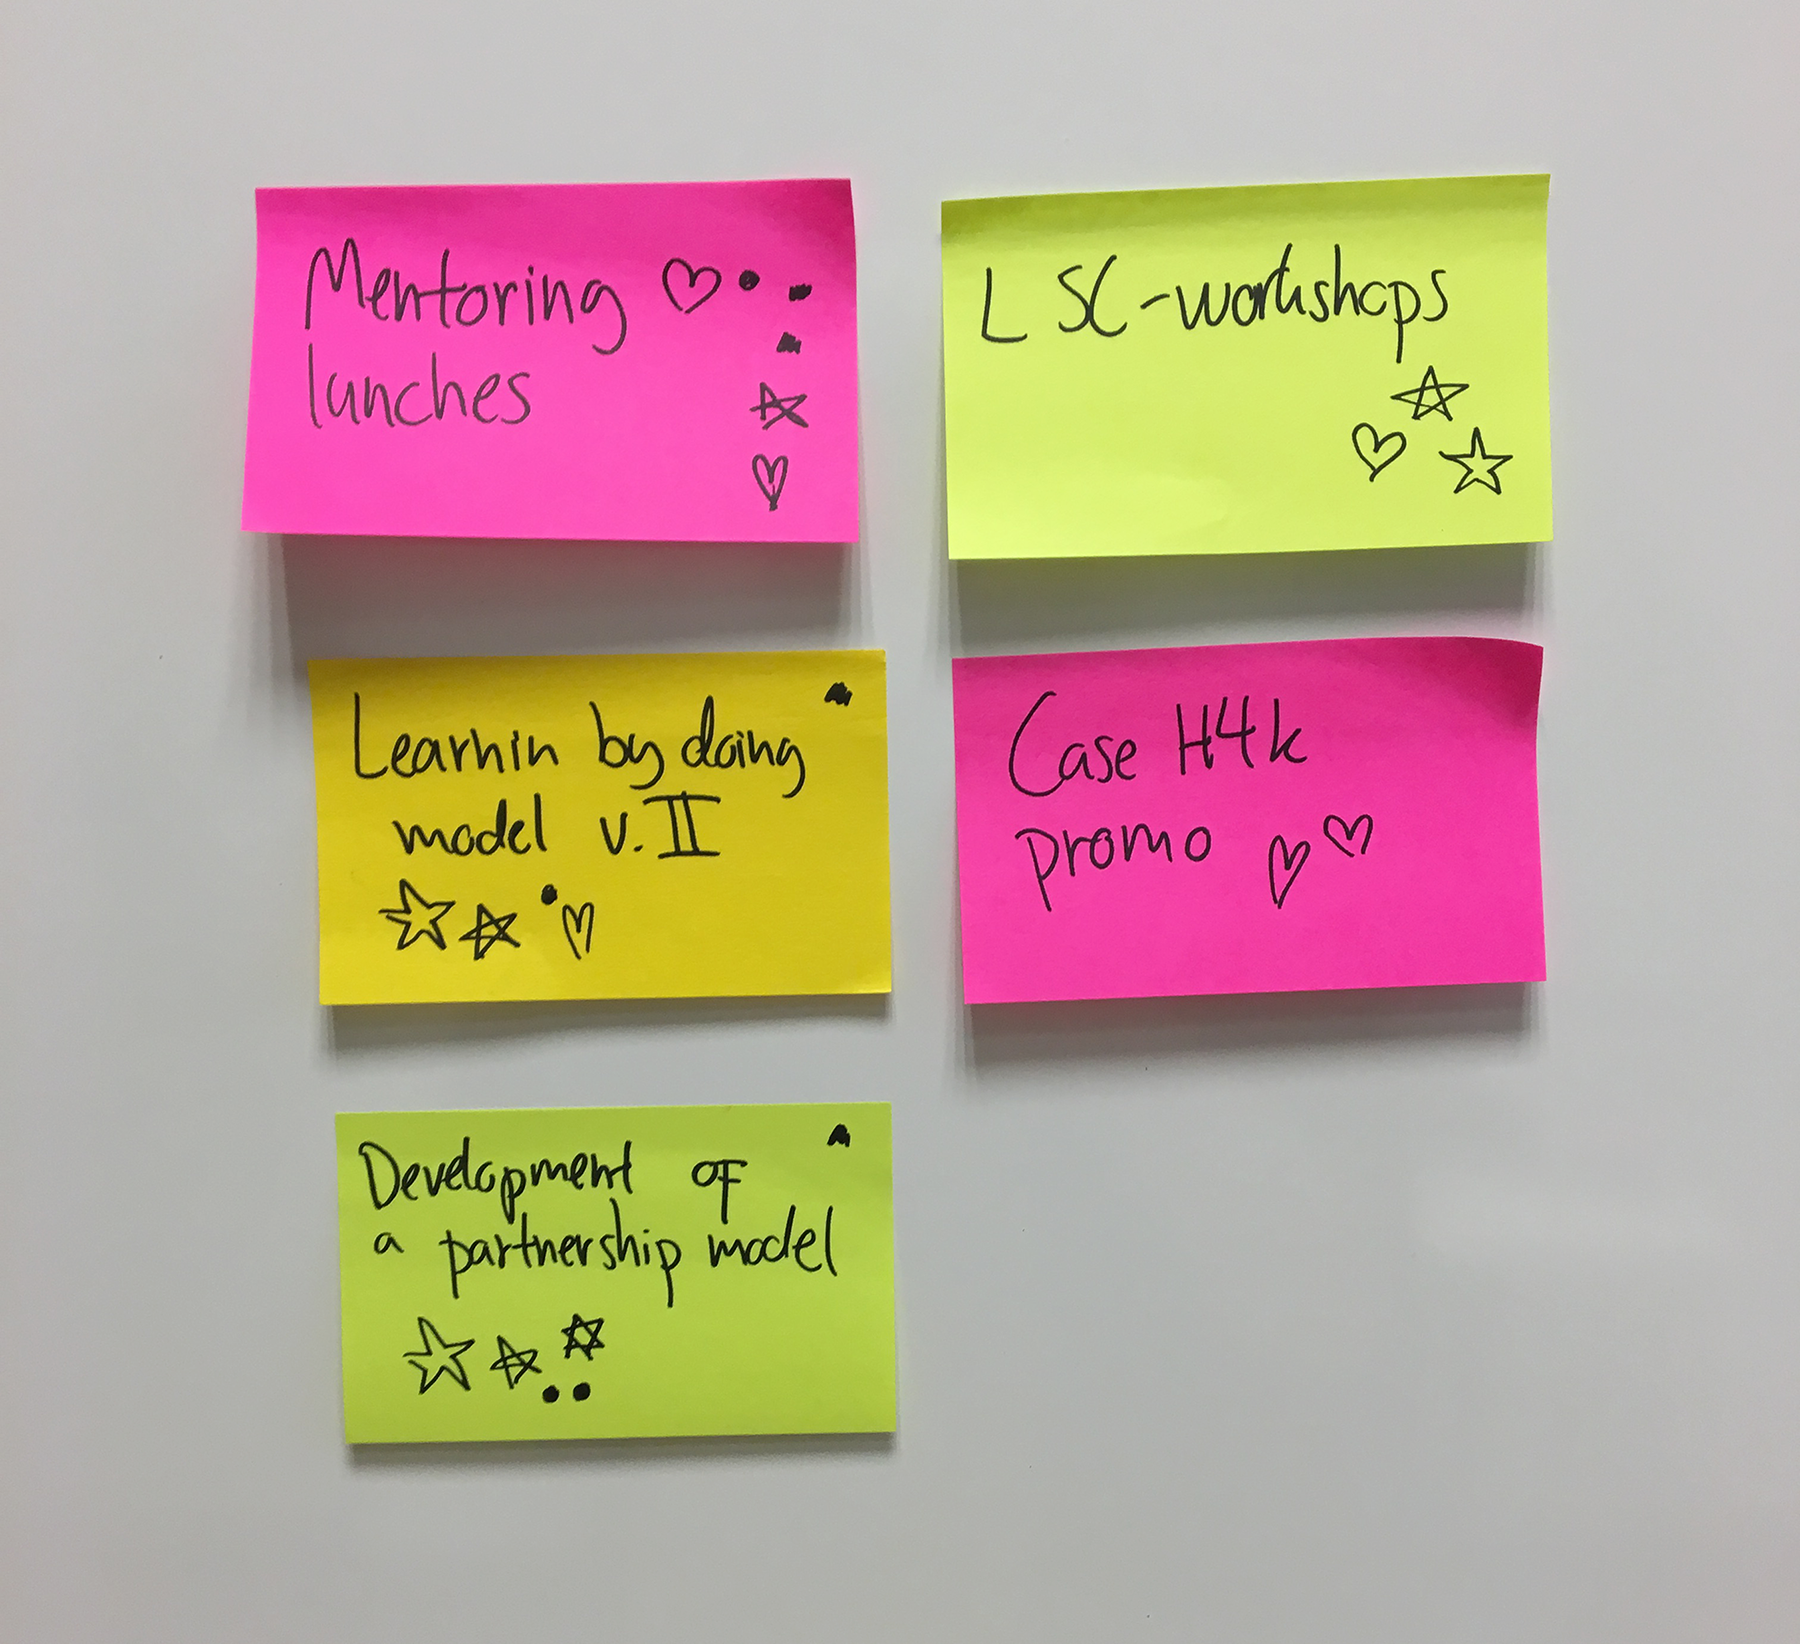 Mentoring
lunches
LSC-workshops
Learnin by doing
model v. II
Case H4k
promo
Development of
a partnership model